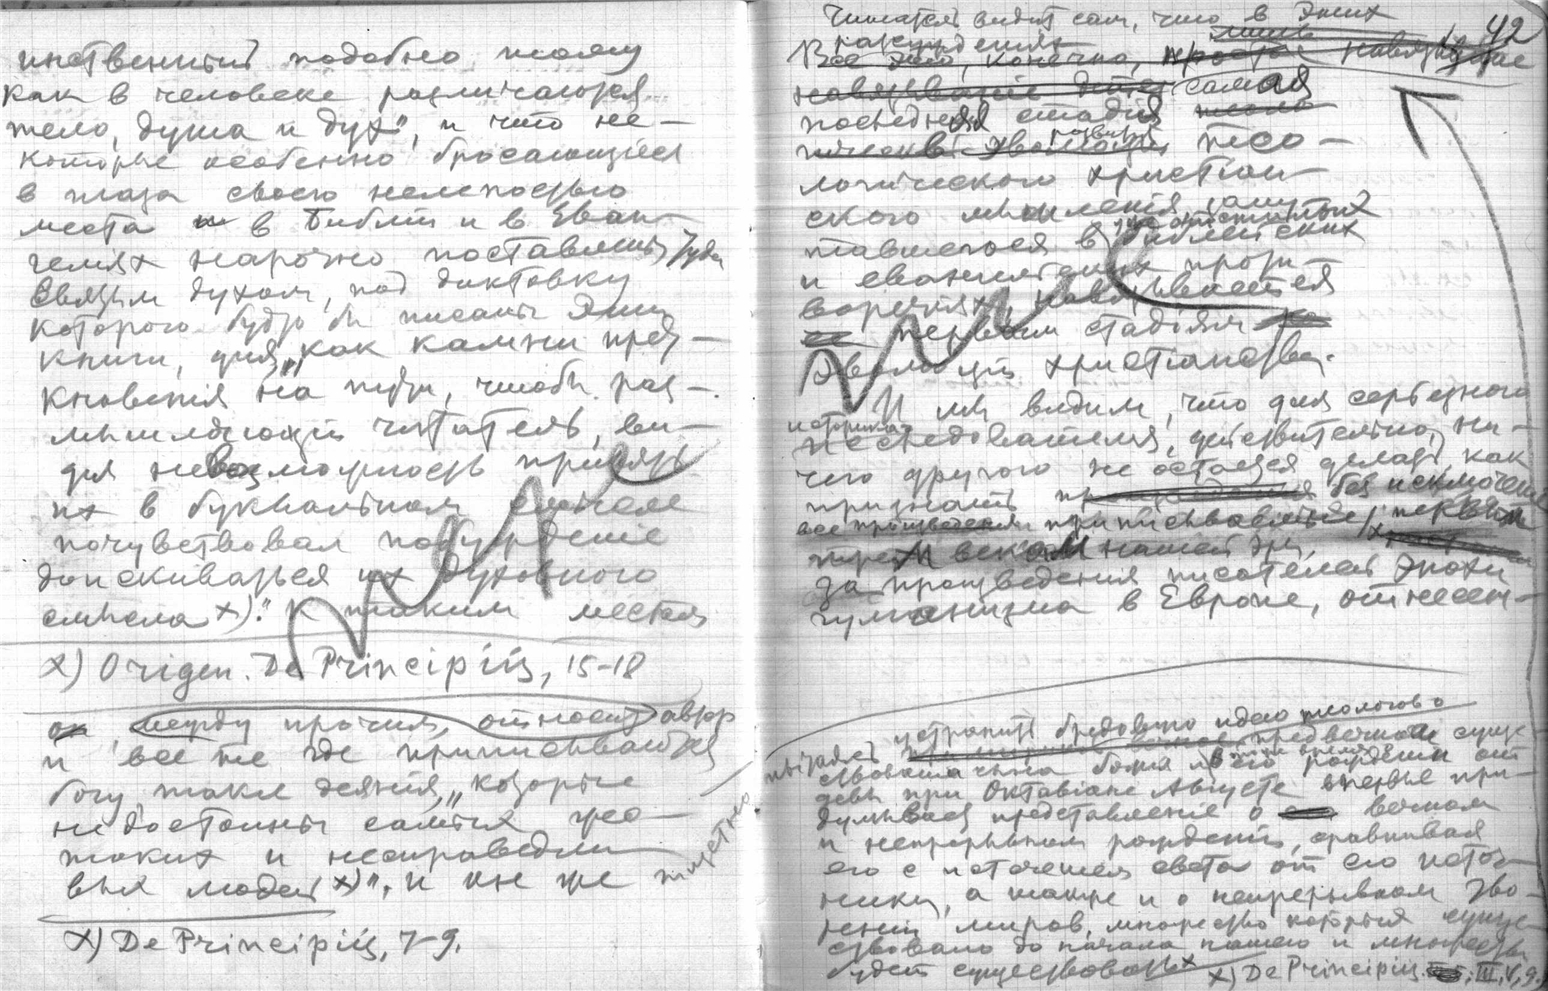 инственный подобно тому
как в человеке различаются
тело, душа и дух", и что не-
которые особенно бросающиеся
в глаза своею нелепостью
места в Библіи и в Еван-
гелиях нарочно поставлены
Святым духом, под диктовку
которого будто бы писаны эти
книги, для „как камни прет-
кновенія на пути, чтобы раз-
мышляющій читатель, ви-
дя невозможность принять
их в буквальном смысле
почувствовал побужденіе
доискиваться их духовного
смысла x)." К таким местам
x) Origen. De Principiis, 15-18
между прочим, относит автор
и все те где приписываются
богу такие деянія, „которые
недостойны самых жес-
токих и несправедли-
вых людей x)", и он же
тщетно
x) De Principiis, 7-9.
Читатель видит сам, что в этих
разсужденіях 42
Все это, конечно,
самая
последняя стадія
развитія тео-
логического христіан-
ского мышленія, запу-
тавшегося в библейских
и евангельских проти-
воречіях,
первым стадіям
эволюціи христіанства.
И мы видим, что для серьезного
историка
изследователя, действительно, ни-
чего другого не остается делать, как
признать без исключенія
все произведения приписываемые первым
трем векам нашей эры,
за произведения писателей эпохи
гуманизма в Европе,
устранить бредовую идею теологов о
пытаясь предвечном суще-
ствовании сына божия и о его рождении от
девы при Октавіане Августе впервые при-
думывает представление о вечном
и непрерывном рожденіи, сравнивая
его с истечением света от его источ-
ника, а также и о непрерывном тво-
рении миров, множество которых суще-
ствовало до начала нашего и множество
будет существовать x x) De Principiis. III, V, 9.